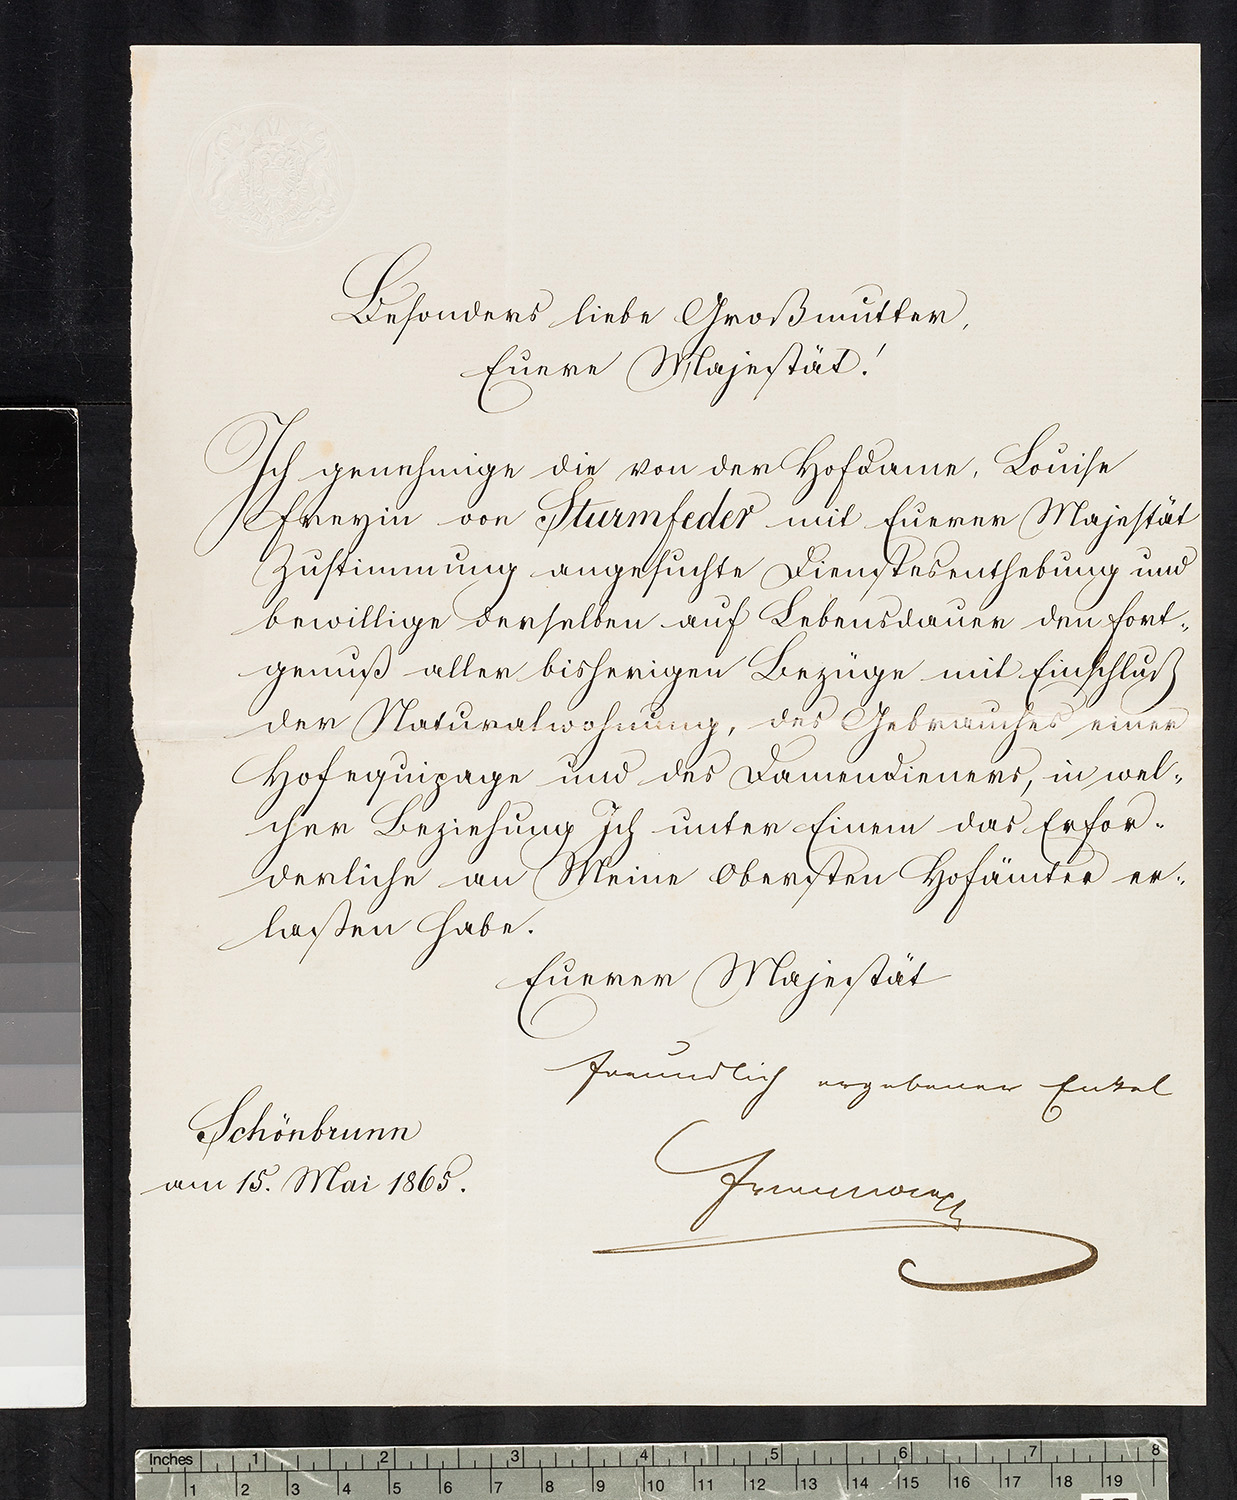 Besonders liebe Großmutter,
Euere Majestät!
Ich genehmige die von der Hofdame, Louise
Freyin von Sturmfeder mit Euerer Majestät
Zustimmung angesuchte Dienstesenthebung und
bewillige derselben auf Lebensdauer den Fort-
genuß aller bisherigen Bezüge mit Einschluß
der Naturalwohnung, des Gebrauches einer
Hofequipage und des Damendieners, in wel-
cher Beziehung Ich unter Einem das Erfor-
derliche an Meine Obersten Hofämter er-
laßen habe.
Euerer Majestät
freundlich ergebener Enkel
Schönbrunn
am 15. Mai 1865.
Inches 1 2 3 4 5 6 7 8
1 2 3 4 5 6 7 8 9 10 11 12 13 14 15 16 17 18 19